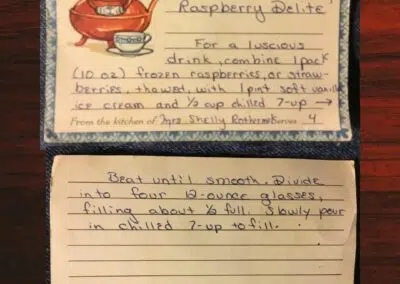 Raspberry Delite
For a luscious
drink, combine 1 pack
(10 oz) frozen raspberries, or straw-
berries, thawed, with 1 pint soft vanilla
ice cream and ½ cup chilled 7-up →
From the kitchen of Mrs. Shelly Serves 4
Beat until smooth. Divide
into four 12-ounce glasses,
filling about ½ full. Slowly pour
in chilled 7-up to fill.